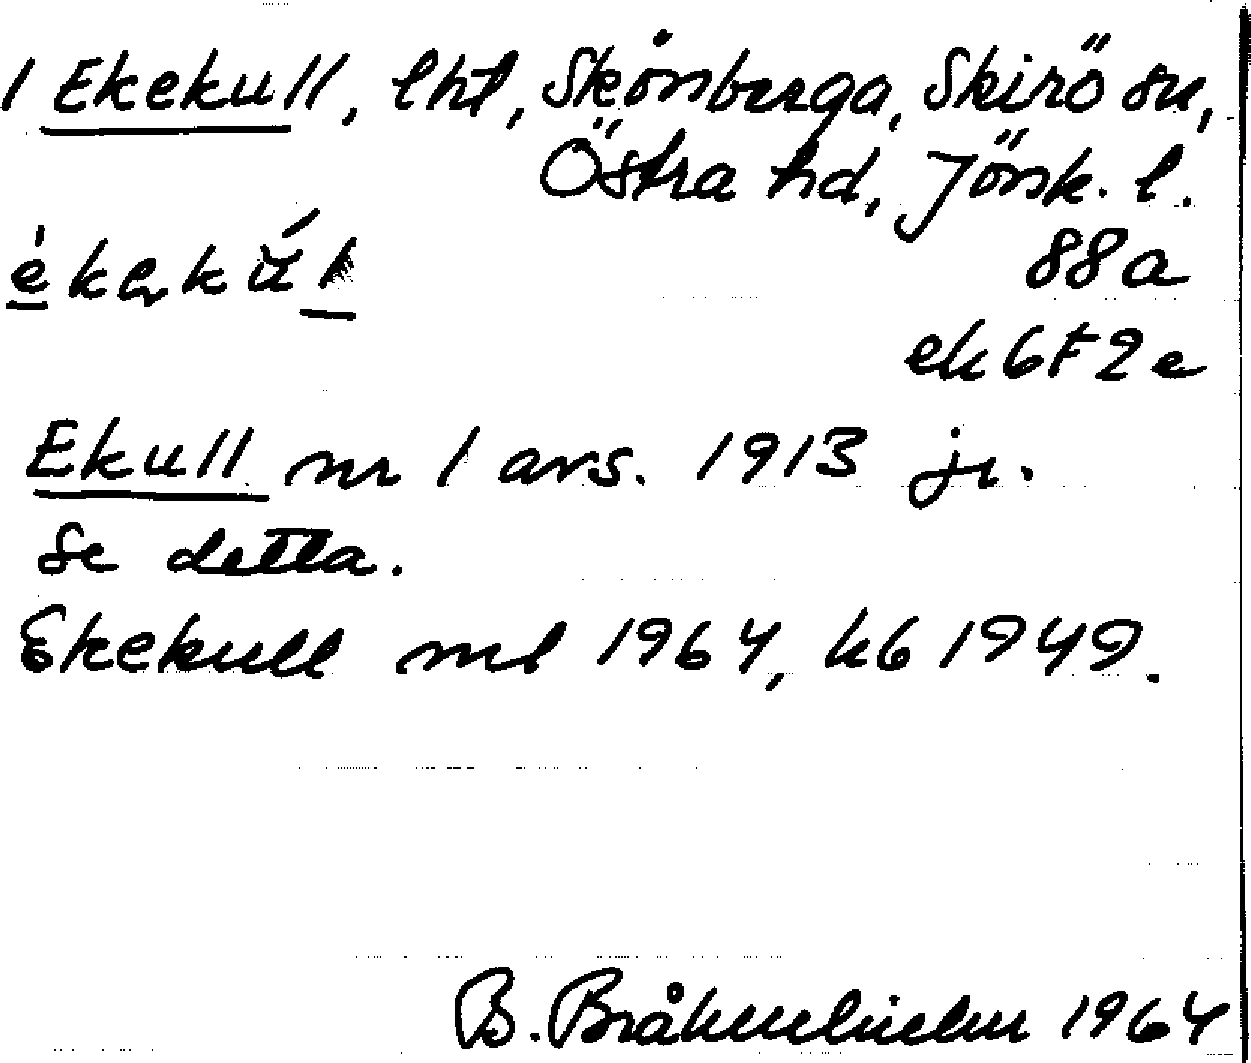 1 Ekekull, lht, Skönberga, Skirö sn,
Östra hd, Jönk. l.
88a
ek6f2e
Ekull nr 1 avs. 1913 jr.
Se detta.
Ekekull ml 1964, kb 1949.
B. 1964